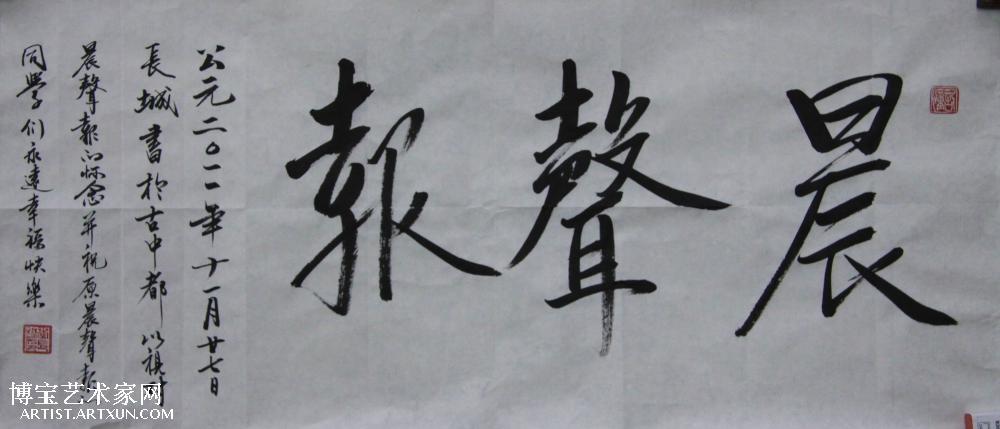 晨聲報
公元二〇一一年十一月廿七日
長城書於古中都 以祺對
晨聲報的怀念並祝原晨聲報的
同學们永遠幸福快樂
博宝艺术家网
ARTIST.ARTXUN.COM